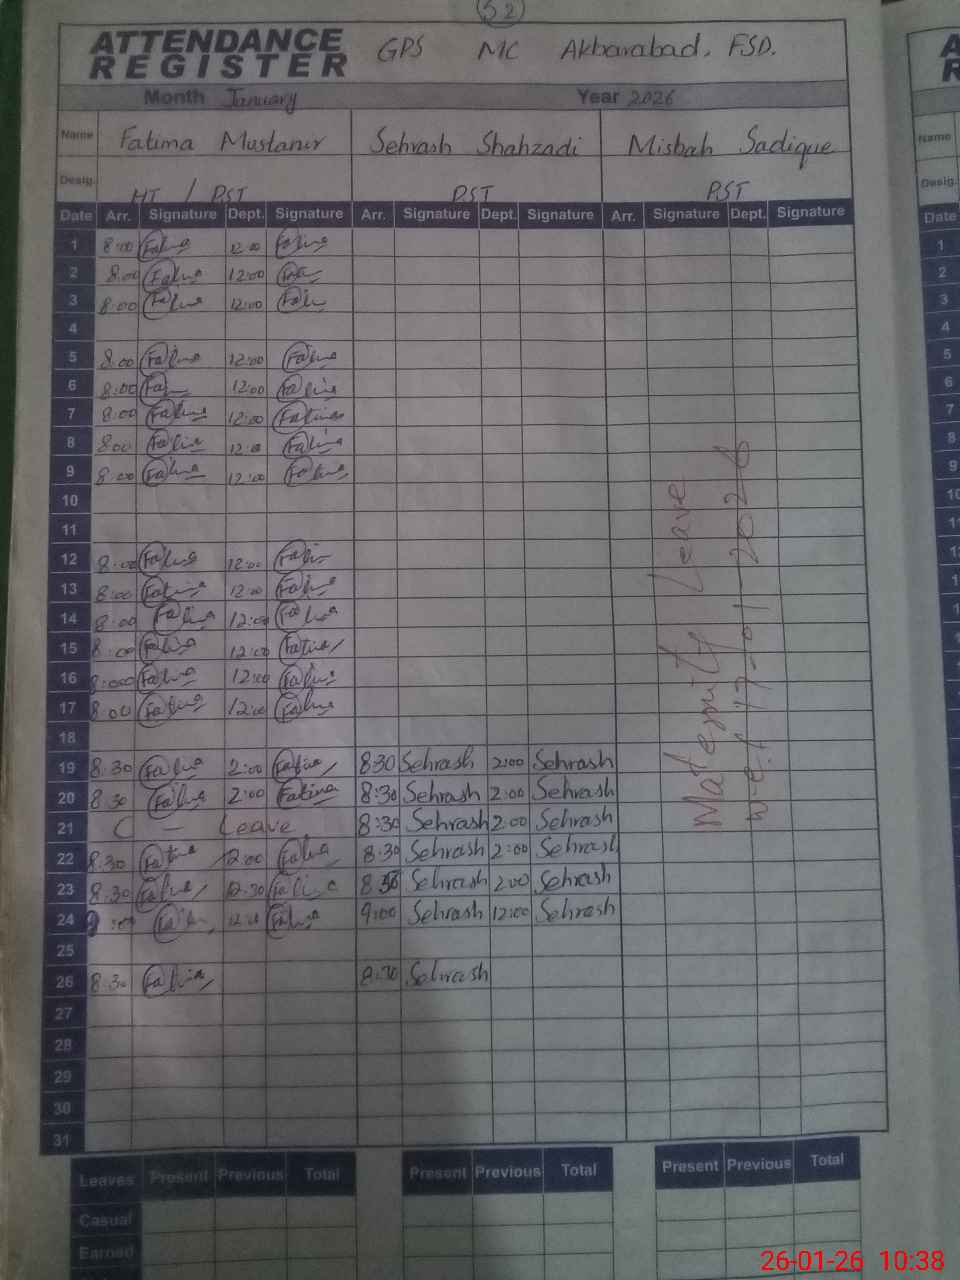 52
ATTENDANCE REGISTER GPS MC Akbarabad, FSD.
Month January Year 2026
Name Fatima Mustansir Sehrash Shahzadi Misbah Sadique
Desig. HT / PST PST PST
Date Arr. Signature Dept. Signature Arr. Signature Dept. Signature Arr. Signature Dept. Signature
1 8:00 Fatima 12:00 Fatima
2 8:00 Fatima 12:00
3 8:00 Fatima 12:00
4
5 8:00 Fatima 12:00 Fatima
6 8:00 12:00 Fatima
7 8:00 Fatima 12:00 Fatima
8 8:00 Fatima 12:00 Fatima
9 8:00 Fatima 12:00 Fatima
10
11
12 8:00 Fatima 12:00 Fatima
13 8:00 Fatima 12:00 Fatima
14 8:00 Fatima 12:00 Fatima
15 8:00 Fatima 12:00 Fatima
16 8:00 Fatima 12:00 Fatima
17 8:00 Fatima 12:00 Fatima
18
19 8:30 Fatima 2:00 Fatima 8:30 Sehrash 2:00 Sehrash
20 8:30 Fatima 2:00 Fatima 8:30 Sehrash 2:00 Sehrash
21 C — Leave 8:30 Sehrash 2:00 Sehrash
22 8:30 Fatima 2:00 Fatima 8:30 Sehrash 2:00 Sehrash
23 8:30 Fatima 12:30 Fatima 8:30 Sehrash 2:00 Sehrash
24 9:00 Fatima 12:00 Fatima 9:00 Sehrash 12:00 Sehrash
25
26 8:30 Fatima 8:30 Sehrash
27
28
29
30
31
Maternity Leave
w.e.f 17-01-2026
Leaves Present Previous Total Present Previous Total Present Previous Total
Casual
Earned
A
R
Name
Desig.
Date
1
2
3
4
5
6
7
8
9
10
11
26-01-26 10:38